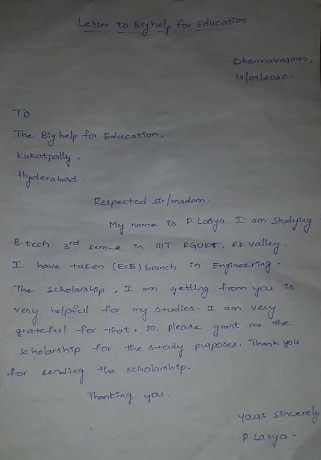 Letter to Bighelp for Education
Dharmavaram,
To
The Big help for Education,
kukatpally,
Hyderabad.
Respected sir/madam.
My name is P. Lasya. I am studying
B.tech 3rd sem-2 in IIIT RGUKT, RK valley.
I have taken (ECE) branch in Engineering.
The scholarship, I am getting from you is
very helpful for my studies. I am very
grateful for that. So, please grant me the
scholarship for the study purposes. Thank you
for sending the scholarship.
Thanking you.
yours sincerely
P. Lasya.